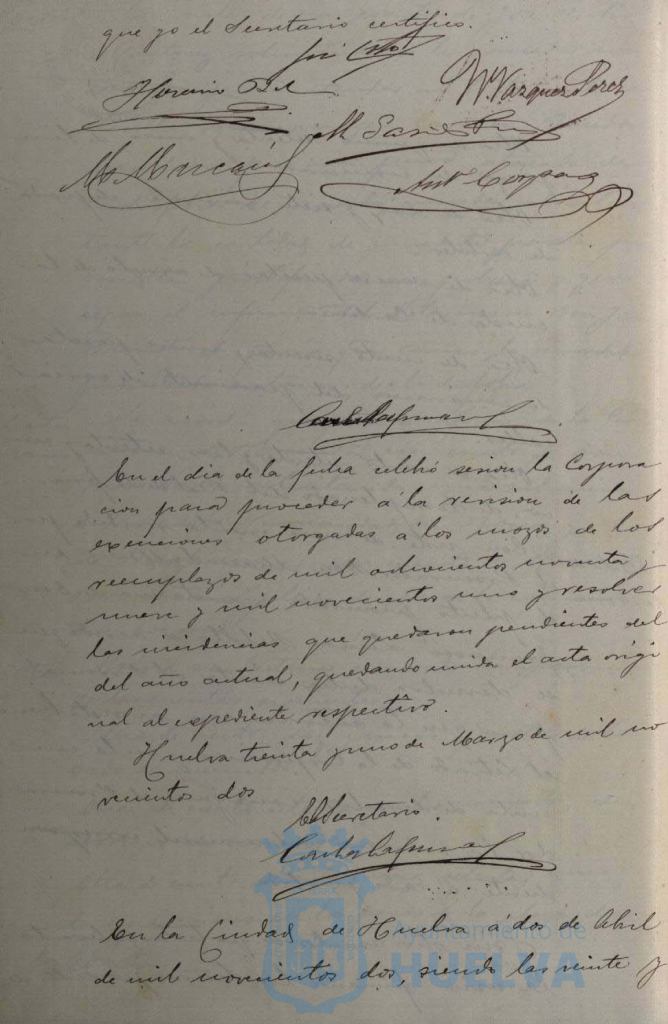 que yo el Secretario certifico.
M. Vazquez Perez
Antº Corpas
En el dia de la fecha celebró sesion la Corpora
cion para proceder á la revision de las
exenciones otorgadas á los mozos de los
reemplazos de mil ochocientos noventa y
nueve y mil novecientos uno y resolver
las incidencias que quedaron pendientes del
del año actual, quedando unida el acta origi
nal al expediente respectivo.
Huelva treinta y uno de Marzo de mil no
vecientos dos
El Secretario.
En la Ciudad de Huelva á dos de Abril
de mil novecientos dos, siendo las veinte y
Ayuntamiento de
HUELVA